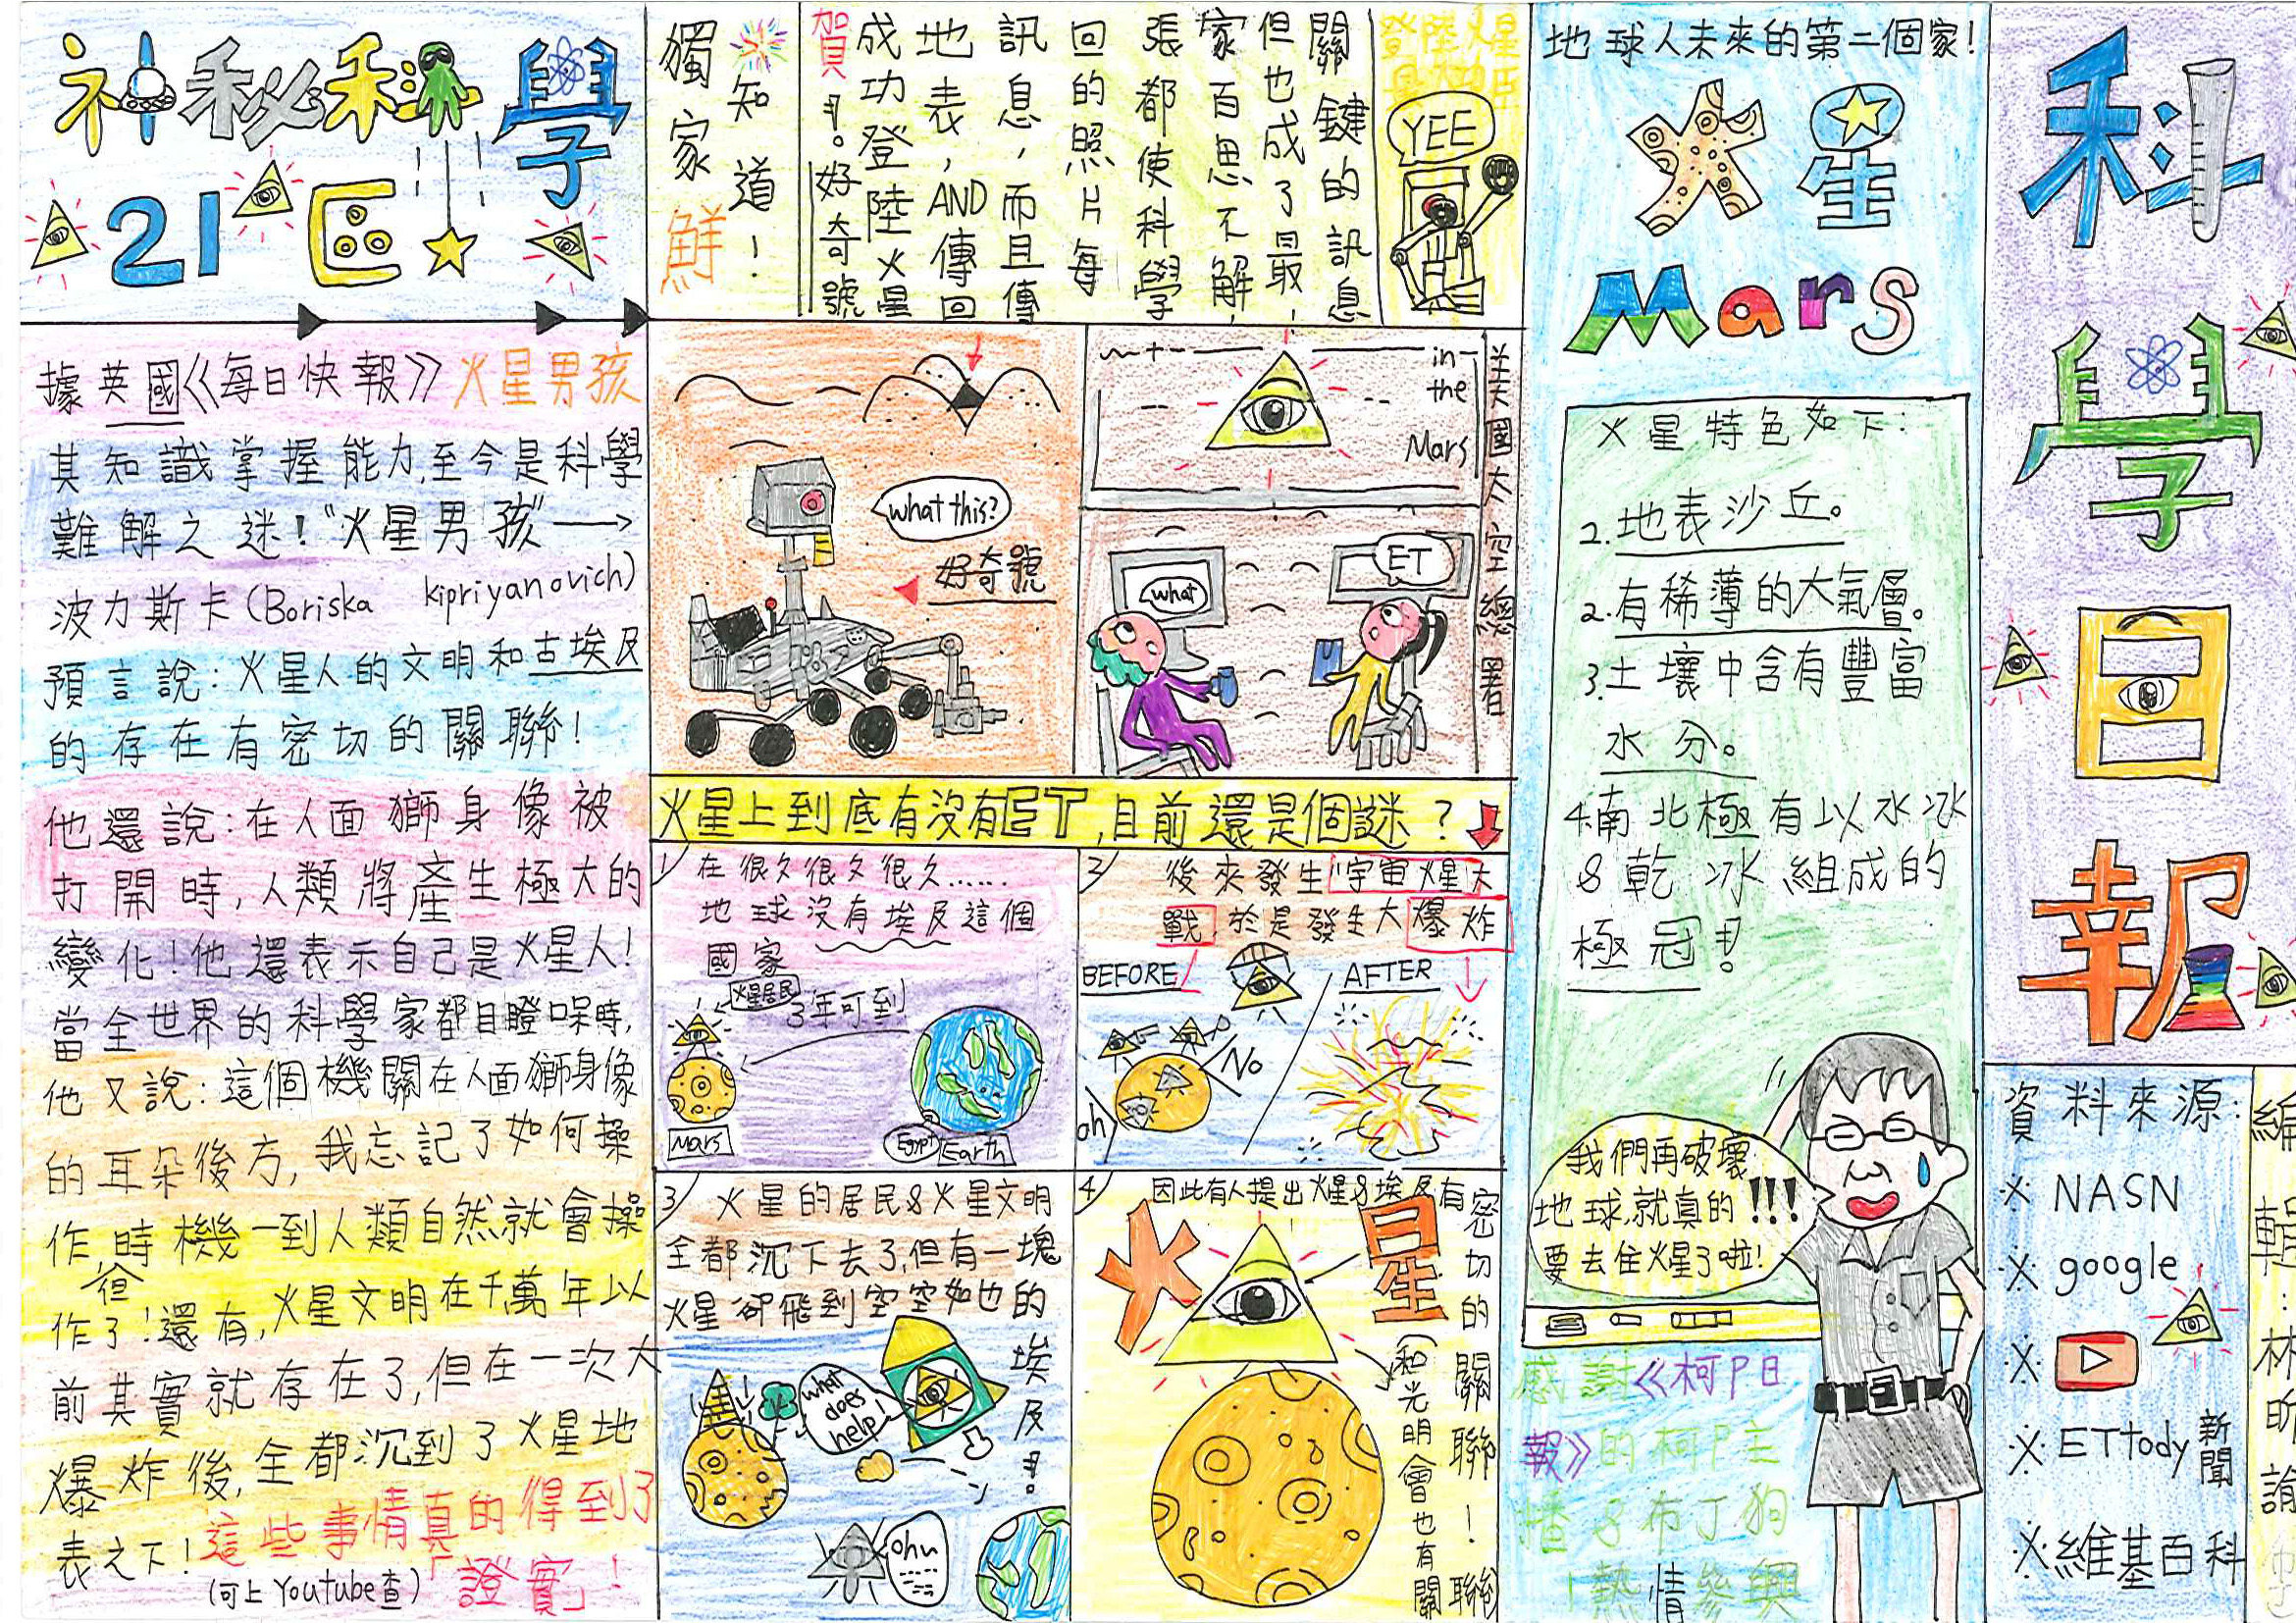 科學日報
資料來源:
※NASN
※google
※
※ETtody新聞
※維基百科
地球人未來的第二個家!
火星
Mars
火星特色如下:
2.地表沙丘。
2.有稀薄的大氣層。
3.土壤中含有豐富
水分。
4.南北極有以水冰
&乾冰組成的
極冠!
我們再破壞
地球,就真的!!!
要去住火星了啦!
感謝《柯P日
報》的柯P主
播&布丁狗
!熱情參與
登陸火星
YEE
關鍵的訊息
但也成了最!
家百思不解,
張都使科學
回的照片每
訊息,而且傳
地表,AND傳回
成功登陸火星
賀!。好奇號
知道!
獨家鮮
what this?
好奇號
in
the
Mars
美國太空總署
what
ET
火星上到底有沒有ET,目前還是個謎?
1 在很久很久很久......
地球沒有埃及這個
國家
火星居民
3年可到
Mars
Egypt
Earth
2 後來發生"宇宙火星大
戰,於是發生大爆炸
BEFORE
AFTER
No
oh
3 火星的居民&火星文明
全都沉下去了,但有一塊
火星卻飛到空空如也的
埃及!。
what
does
help!
ohu
4 因此有人提出火星&埃及有密
切的關聯!
火星
(和光明會也有關聯
神秘科學
21區
據英國《每日快報》火星男孩
其知識掌握能力,至今是科學
難解之迷!"火星男孩"→
波力斯卡(Boriska kipriyanovich)
預言說:火星人的文明和古埃及
的存在有密切的關聯!
他還說:在人面獅身像被
打開時,人類將產生極大的
變化!他還表示自己是火星人!
當全世界的科學家都目瞪口呆時,
他又說:這個機關在人面獅身像
的耳朵後方,我忘記了如何操
作時機一到人類自然就會操
作了!還有,火星文明在千萬年以
前其實就存在了,但在一次大
爆炸後,全都沉到了火星地
表之下!這些事情真的得到了
(可上Youtube查)「證實」!